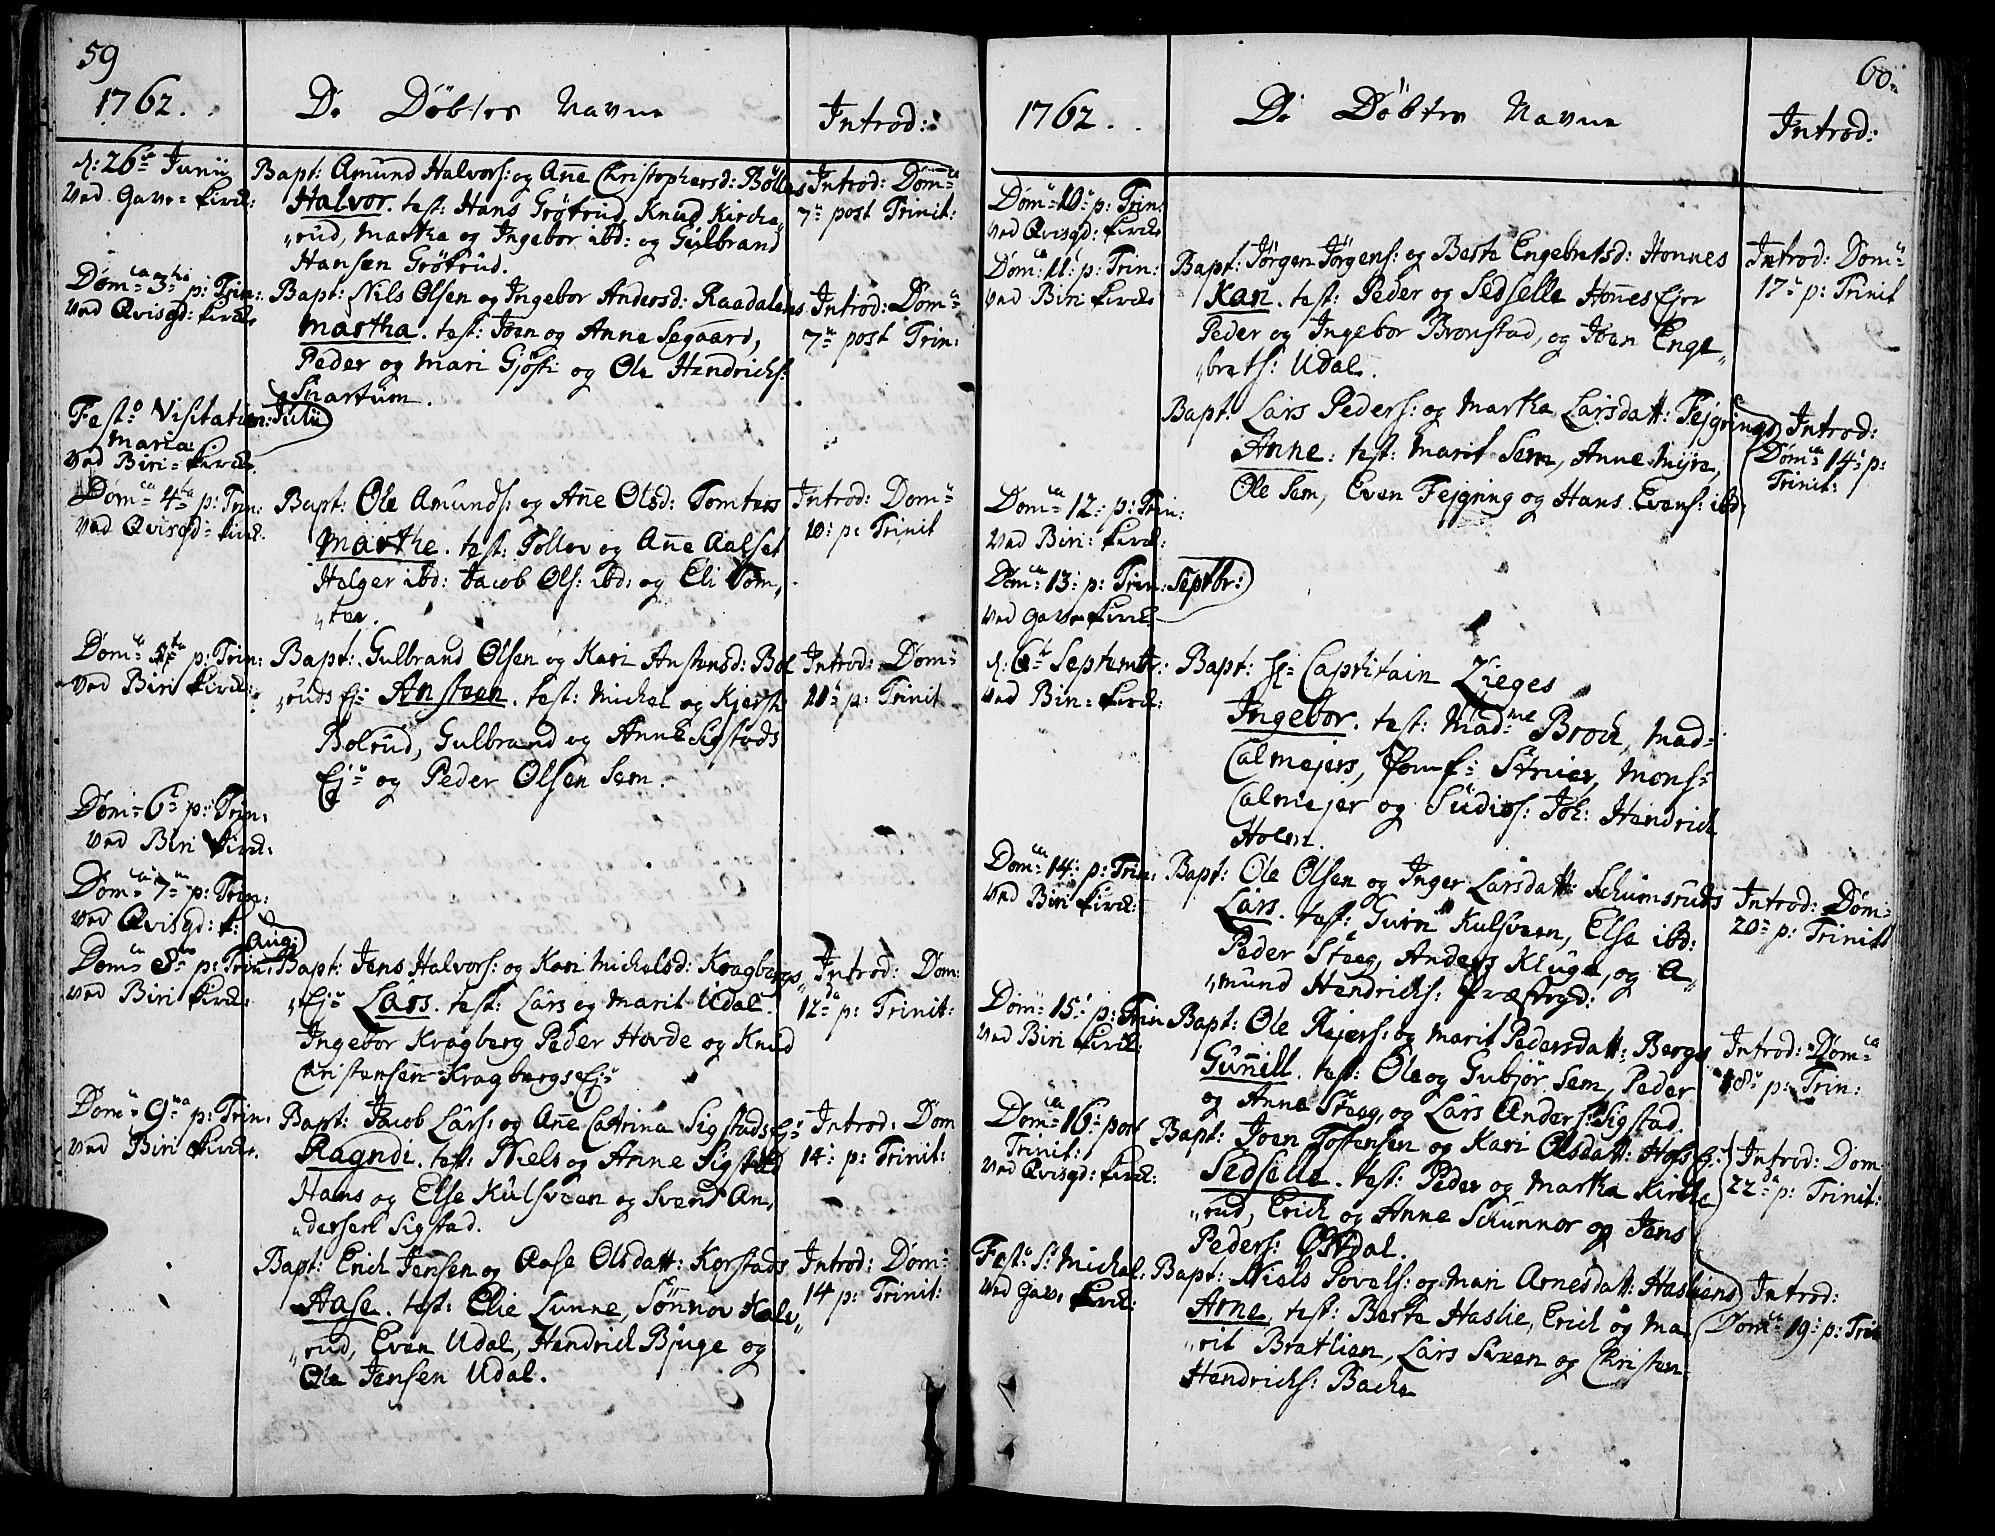 59
1762.
De Döbtes Navne
Introd:
d: 26de Junij
Ved Gave-Kirck:
Bapt: Amund Halvors: og Añe Christophersd: Bölles
Halvor. test: Hans Grötrud, Knud Kircke„
„rud, Martha og Ingebor ibd: og Gulbrand
Hansen Grötrud.
Introd: Domca
7de post Trinit:
Domca 3tia p: Trin:
Ved Qvisgd: Kirck:
Bapt: Nils Olsen og Ingebor Andersd: Raadalens
Martha. test: Joen og Anne Segaard,
Peder og Mari Gjösti og Ole Hendrichs:
Snartum.
Introd: Domca
7de post Trin:
Festo Visitation: Julii
Mariæ
Ved Biri-Kirck:
Domca 4ta p: Trin:
Ved Qvisgd: Kirck:
Bapt: Ole Amunds: og Añe Olsd: Tomters
Marthe. test: Tollov og Añe Aalset
Helger ibd: Jacob Ols: ibd: og Eli Tom„
„ter.
Introd: Domca
10: p: Trinit
Domca 5ta p: Trin:
Ved Biri Kirck:
Bapt: Gulbrand Olsen og Kari Anstensd: Bol
„ruds Ej: Ansteen. test: Michel og Kjersti
Bolrud, Gulbrand og Anne Sigstads
Ej: og Peder Olsen Sem.
Introd: Dom:
10: p: Trinit
Dom: 6: p: Trin:
Ved Biri Kirck:
Domca 7ma p: Trin:
Ved Qvisgd: K:
Aug:
Domca 8va p: Trin:
Ved Biri Kirck:
Bapt: Jens Halvors: og Kari Michelsd: Kragbergs
„Ej: Lars. test: Lars og Marit Udal.
Ingebor Kragberg Peder Hovde og Knud
Christensen Kragbergs Ej:
Introd: Dom:
12: p: Trinit:
Domca 9na p: Trin:
Ved Biri Kirck.
Bapt: Jacob Lars: og Añe Catrina Sigstads Ej:
Ragndi. test: Niels og Anne Sigstad
Hans og Else Kulsveen og Svend An„
„dersen Sigstad.
Introd: Dom
14: p: Trinit:
Bapt: Erich Jensen og Aase Olsdatt: Korstads
Aase. test: Elie Lunne, Sönnov Kalv„
„rud, Even Udal, Hendrich Bjuge og
Ole Jensen Udal.
Introd: Dom:
14 p: Trinit:
60.
1762.
De Döbtes Navne
Introd:
Domca 10: p: Trin:
Ved Qvisgd: Kirck:
Domca 11: p: Trin:
Ved Biri Kirck:
Bapt: Jörgen Jörgens: og Berte Engebretsd: Honnes
Kari. test: Peder og Sedselle Hoñes Ejer
Peder og Ingebor Bronstad, og Joen Enge„
„brets: Udal.
Introd: Domca
17: p: Trinit
Bapt: Lars Peders: og Martha Larsdatt: Fejgrings
Anne: test: Marit Sem, Anne Myre,
Ole Sem, Even Fejgring og Hans Evens: ibd:
Introd:
Domca 14: p:
Trinit:
Domca 12: p: Trin:
Ved Biri: Kirck:
Domca 13: p: Trin: Septbr:
Ved Gave Kirck
d: 6te Septembr:
Ved Biri: Kirck:
Bapt: Hr: Captitain Zieges
Ingebor. test: Madme Brock, Mad:
Calmejers, Jomf: Struer, Mons:
Calmejer og Studios: Joh: Hendrich
Holm.
Domca 14: p: Trin:
Ved Biri Kirck:
Bapt: Ole Olsen og Inger Larsdatt: Schumsruds
Lars. test: Guri Kulsveen, Else ibd:
Peder Steeg, Anders Kluge, og A„
„mund Hendrichs: Præstegd:
Introd: Dom:
20: p: Trinit
Dom: 15: p: Trin
Ved Biri Kirck:
Bapt: Ole Rejers: og Marit Pedersdatt: Bergs
Guñild. test: Ole og Gubjör Sem, Peder
og Anne Steeg, og Lars Anders: Sigstad.
Introd: Domca
18: p: Trin:
Domca 16: post
Trinit:
Ved Qvisgd: Kirck:
Bapt: Joen Tostensen og Kari Olsdatt: Hofs Ej:
Sedselle. test: Peder og Martha Kircke
„rud, Erich og Anne Schunnor og Jens
Peders: Ostdal.
Introd: Dom
22: p: Trinit:
Festo St: Michal:
Ved Gave Kirck:
Bapt: Niels Povels: og Mari Arnesdatt: Hasliens
Arne, test: Berte Haslie, Erich og Ma
„rit Bratlien, Lars Sveen og Christen
Hendrichs: Bache
Introd:
Domca 19: p: Trin